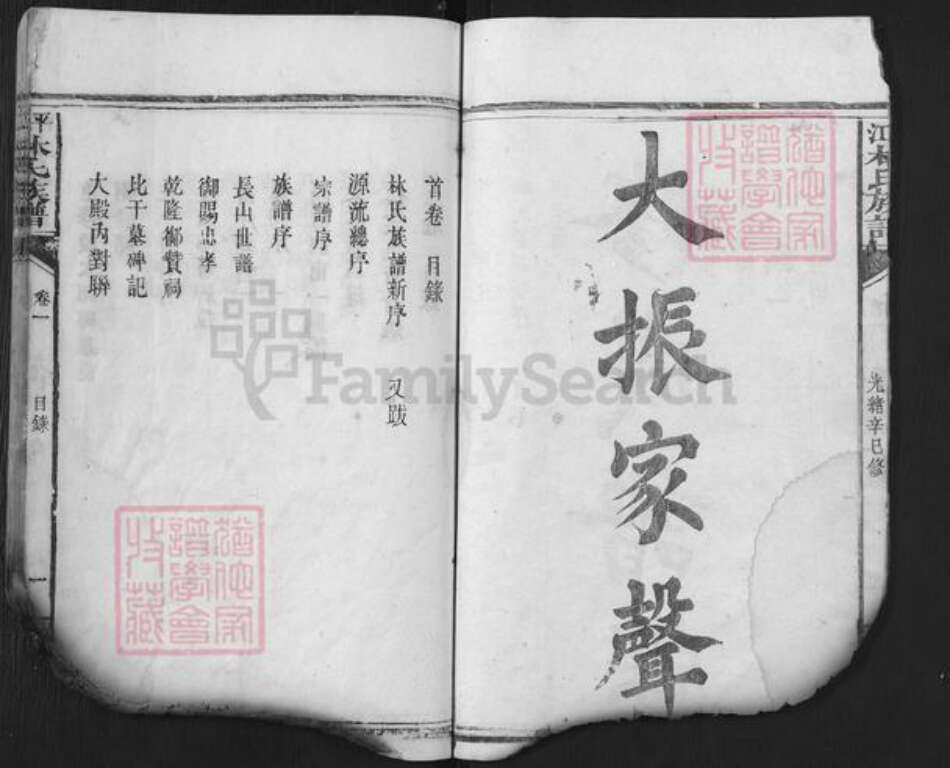 江林氏族譜
光緒辛巳修
大振家聲
首卷 目錄
林氏族譜新序 又跋
源流總序
宗譜序
族譜序
長山世譜
御賜忠孝
乾隆御贊詞
比干墓碑記
大殿內對聯
平江林氏族譜
卷一
目錄
一
FamilySearch
譜學會
收藏